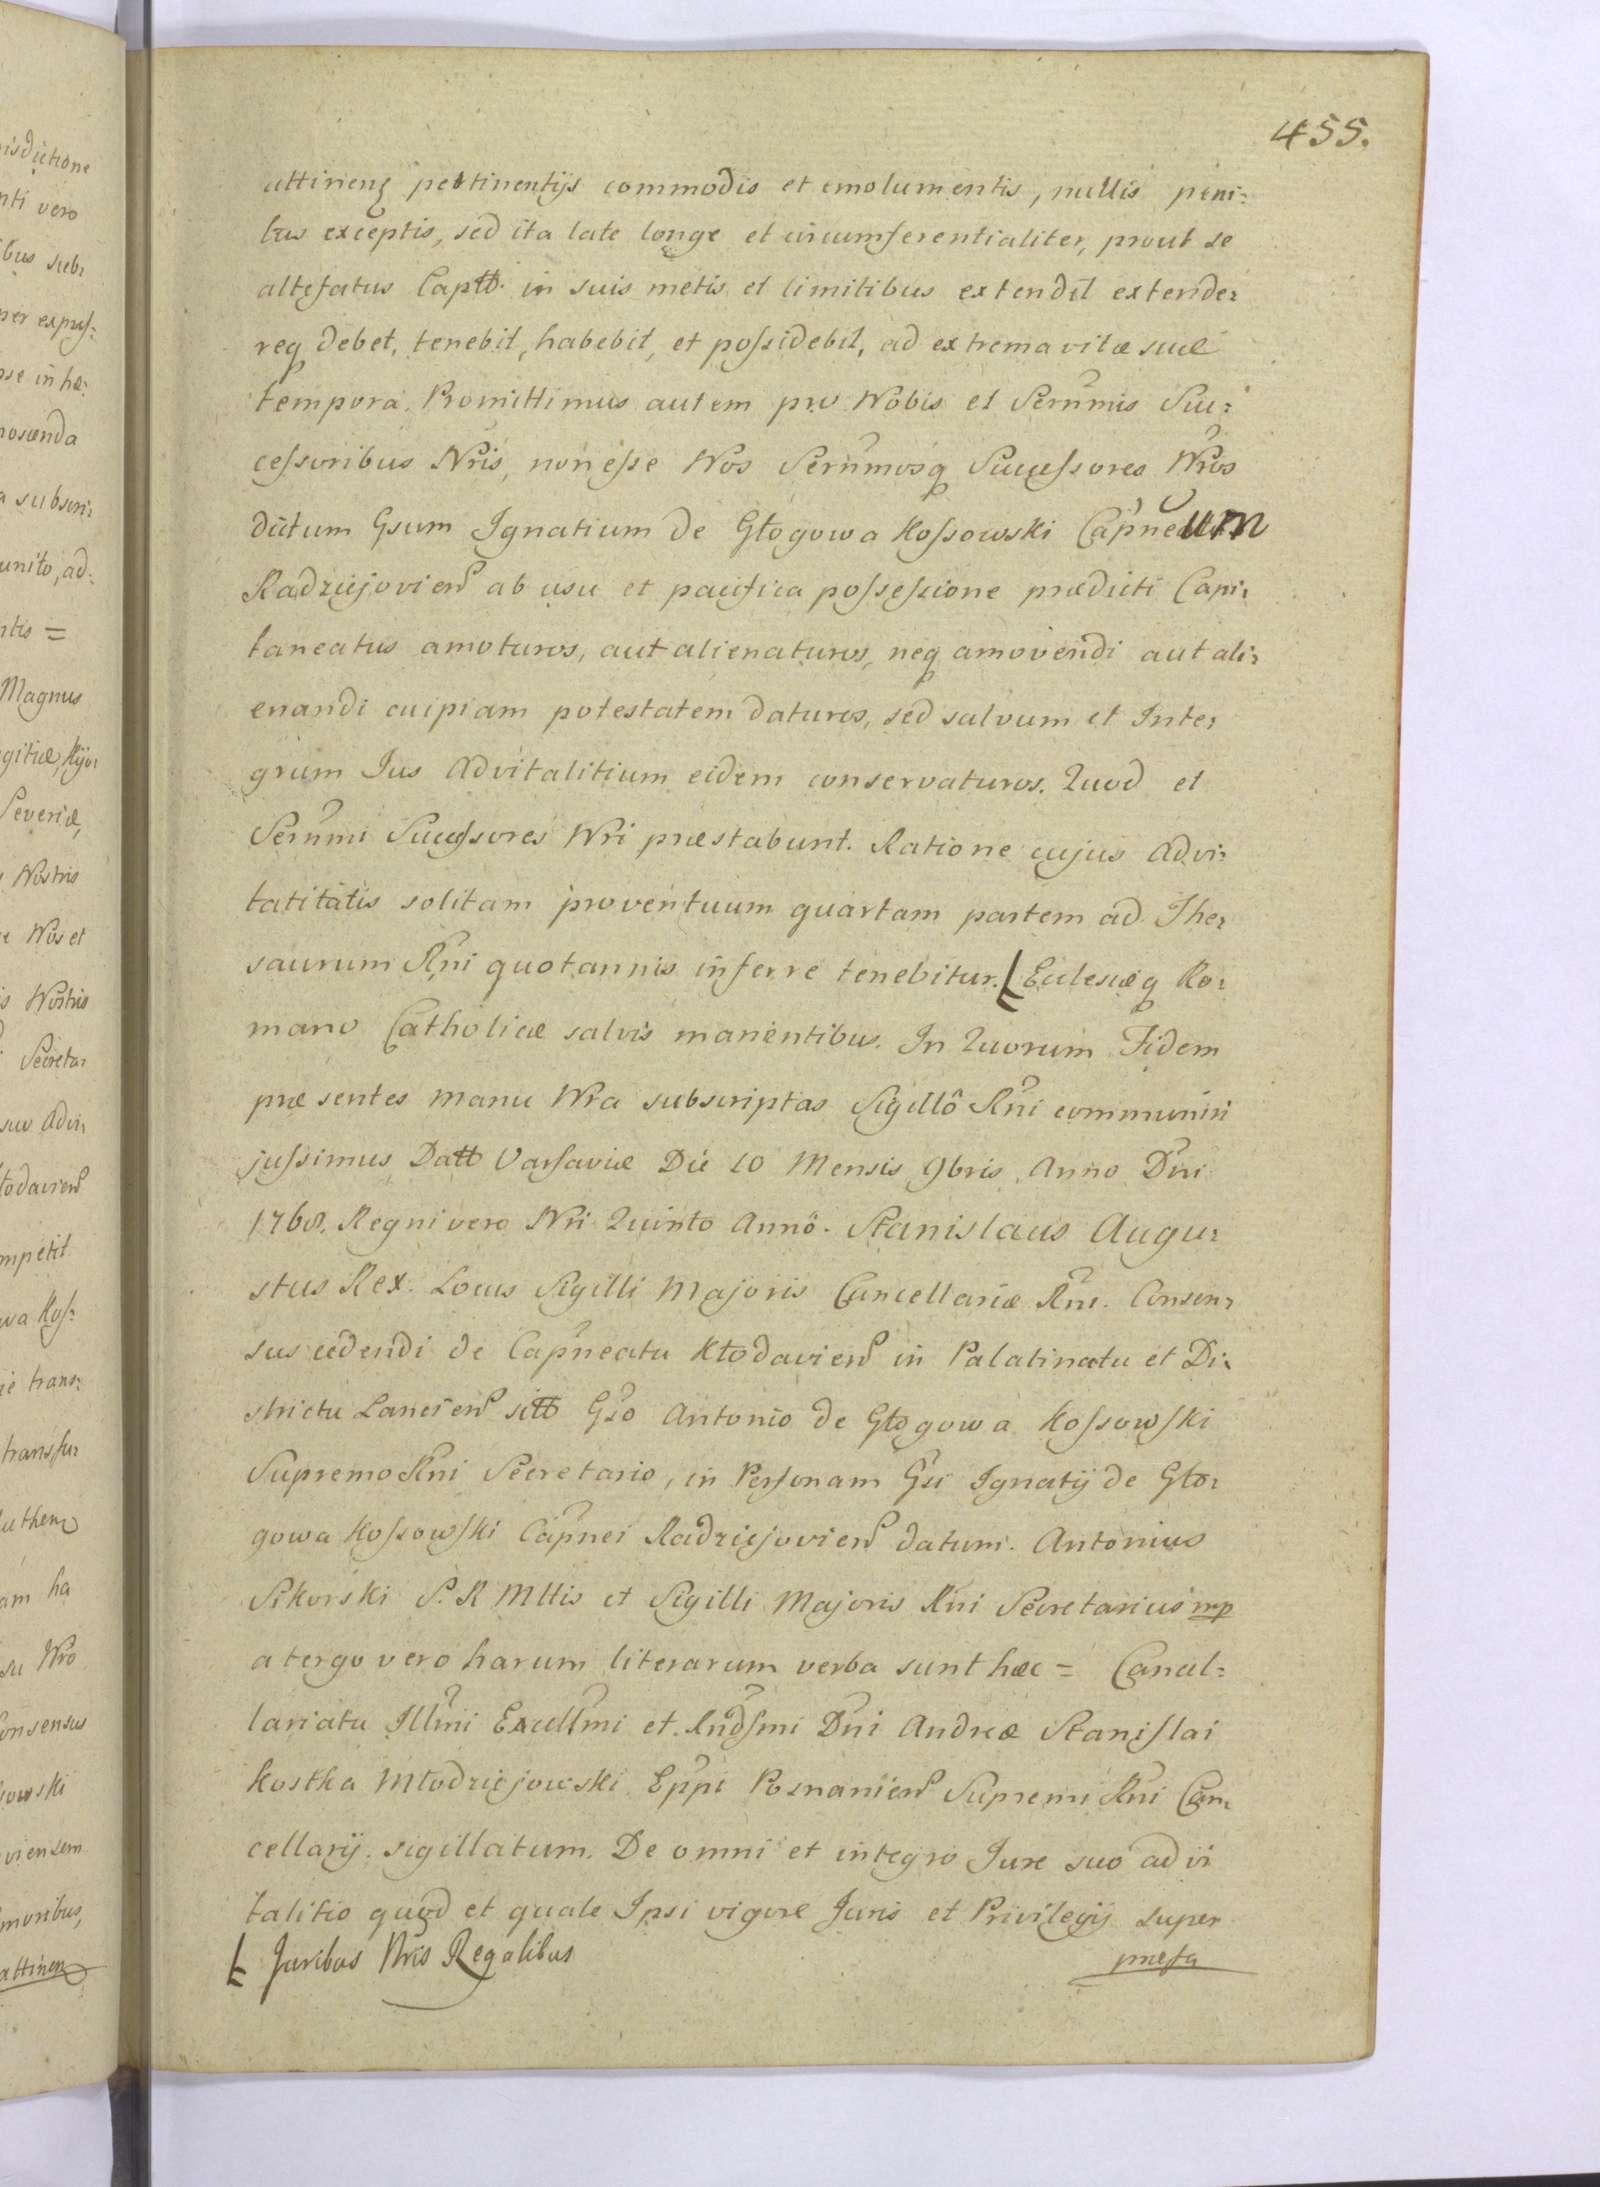 455.
attinenꝫ pertinentijs commodis et emolumentis, nullis peni:
tus exceptis, sed ita late longe et circumferentialiter, prout se
altefatus Captt. in suis metis et limitibus extendit extende:
req debet, tenebit, habebit, et poſsidebit, ad extrema vitæ suæ
tempora. Promittimus autem pro Nobis et Sernmis Suc:
ceſsoribus Nris, non eſse Nos Sernmosq Succeſsores Nros
dictum Gsum Ignatium de Głogowa Koſsowski Capneum
Radziejovien ab usu et pacifica poſseſsione prædicti Capi:
taneatus amoturos, aut alienaturos, neq amovendi aut ali:
enandi cuipiam potestatem daturos, sed salvum et Inte:
grum Jus Advitalitium eidem conservaturos. Quod et
Sernmi Succeſsores Nri præstabunt. Ratione cujus Advi:
talitatis solitam proventuum quartam partem ad The:
saurum Rni quotannis inferre tenebitur. Ecclesiæq Ro:
mano Catholicæ salvis manentibus. In Quorum Fidem
præsentes manu Nra subscriptas Sigillô Rni communiri
juſsimus Datt Varsaviæ Die 10 Mensis 9bris Anno Dni
1768. Regni vero Nri Quinto Annô. Stanislaus Augu:
stus Rex. Locus Sigilli Majoris Cancellariæ Rni. Consen:
sus cedendi de Capneatu Kłodavien in Palatinatu et Di:
strictu Lancien sitt Gso Antonio de Głogowa Koſsowski
Supremo Rni Secretario, in Personam Gsi Ignatij de Gło:
gowa Koſsowski Capnei Radziejovien datum. Antonius
Sikorski S. R Mttis et Sigilli Majoris Rni Secretarius mp
a tergo vero harum literarum verba sunt hæc = Cancel:
lariatu Illmi Excellmi et Rndſmi Dni Andreæ Stanislai
Kostka Młodziejowski Eppi Posnanien Supremi Rni Can:
cellarij sigillatum. De omni et integro Jure suo advi
talitio quod et quale Ipsi vigore Juris et Privilegij super
Juribus Nris Regalibus
præfa